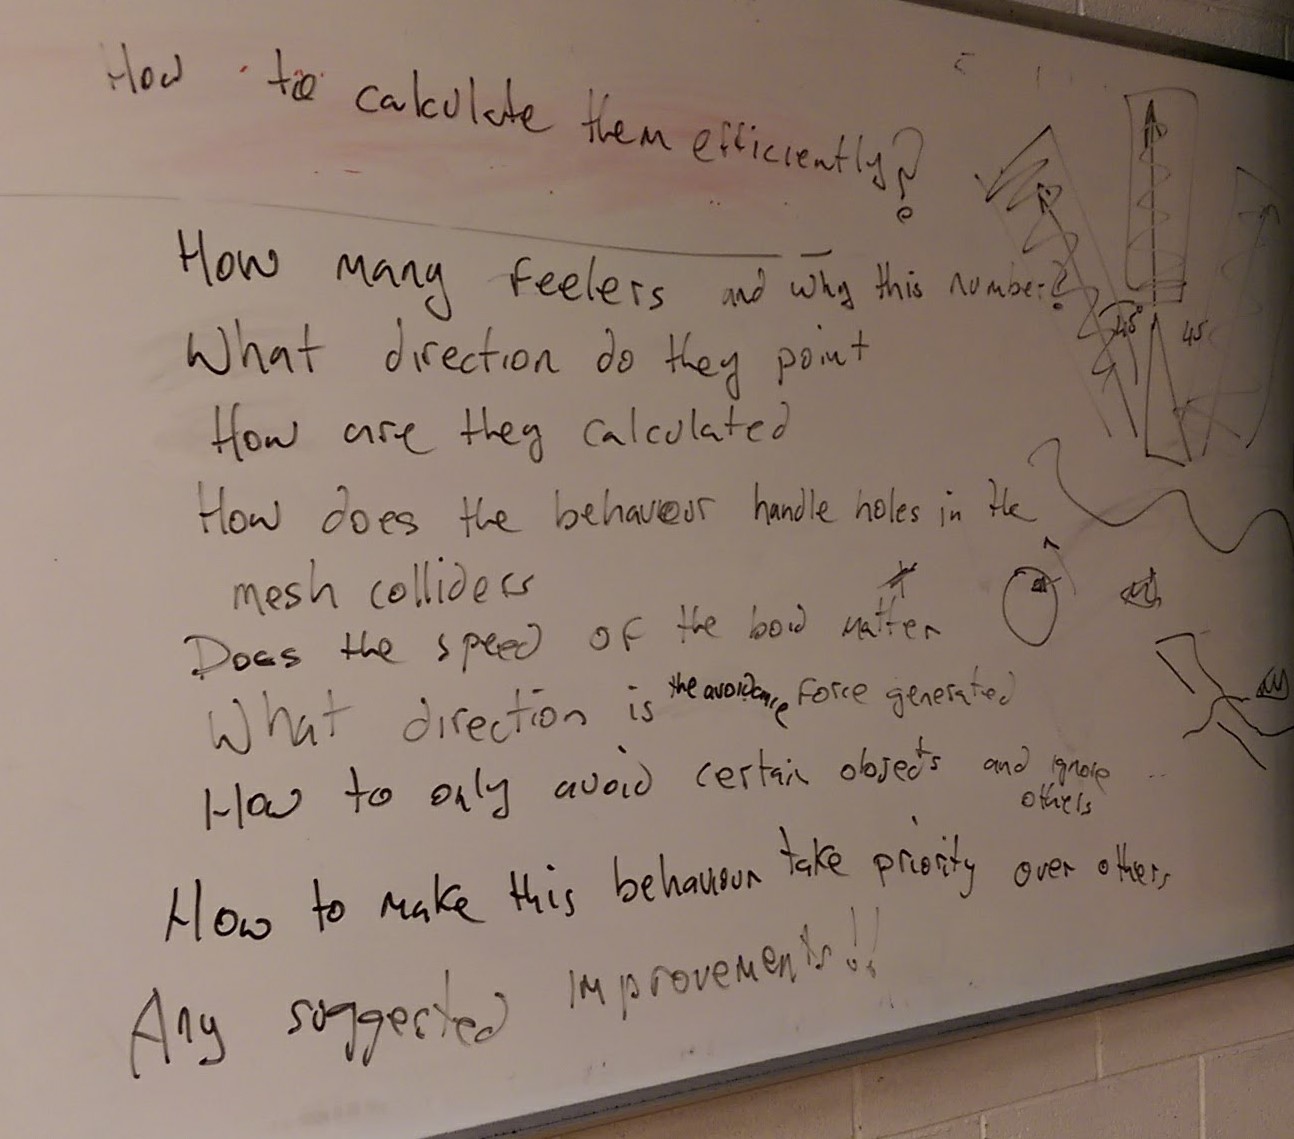 How to calculate them efficiently?
How many feelers and why this number?
What direction do they point
How are they calculated
How does the behaveour handle holes in the
mesh colliders
Does the speed of the boid matter
What direction is the avoidance force generated
How to only avoid certain objects and ignore
others
How to make this behaviour take priority over others
Any suggested improvements!!
45°
45